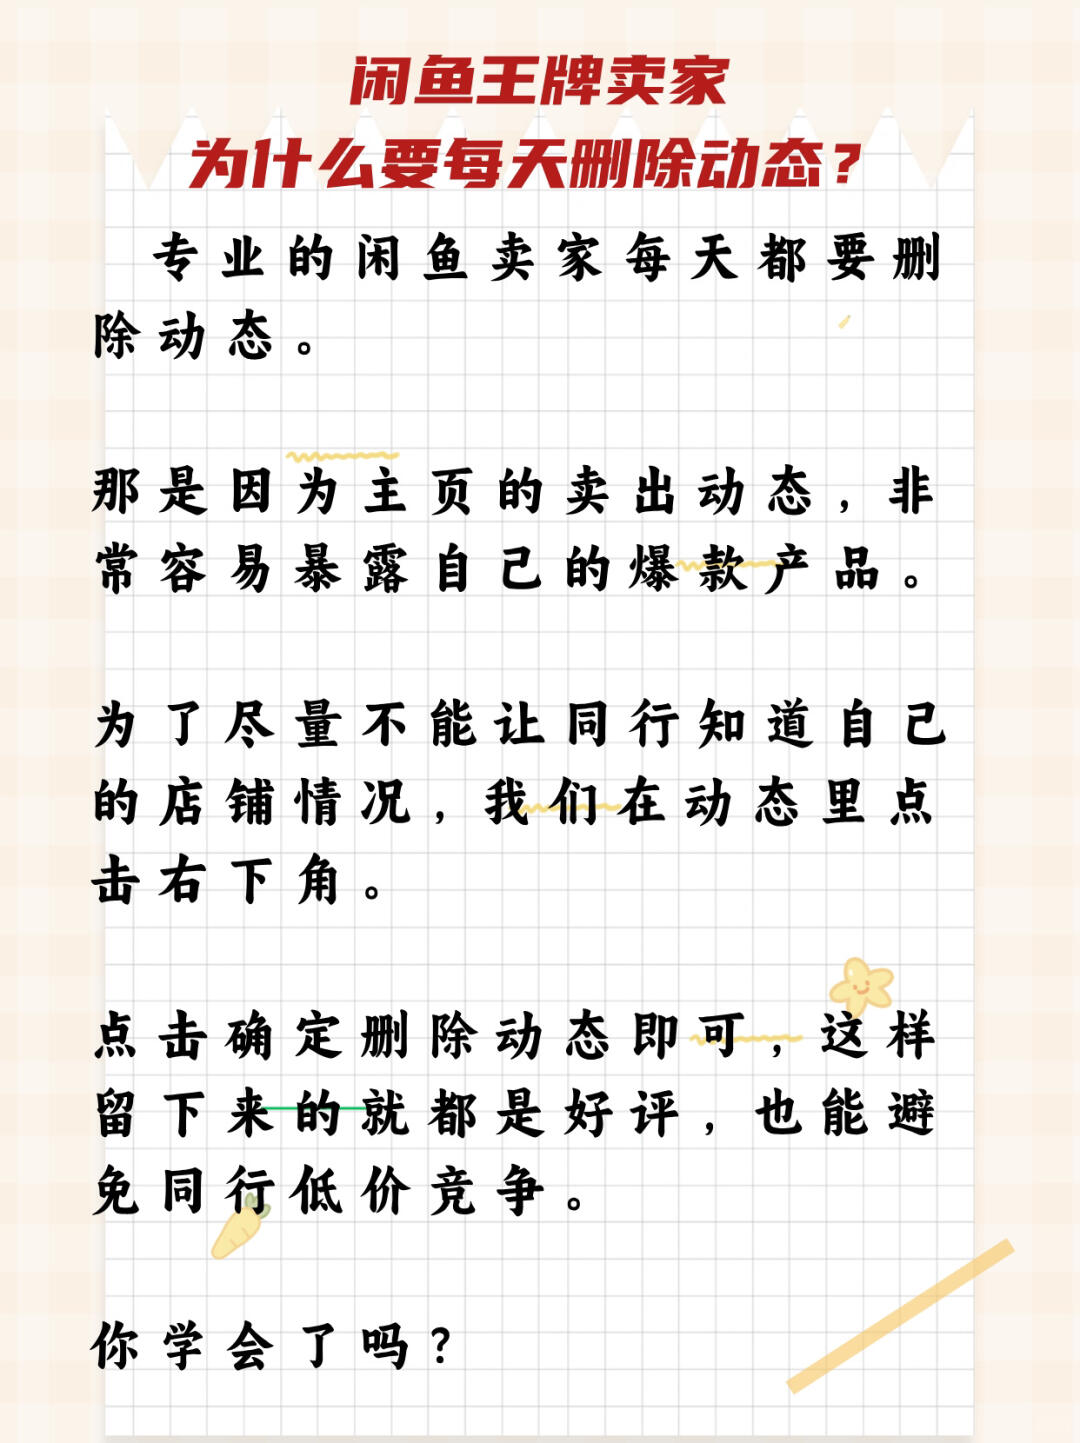 闲鱼王牌卖家
为什么要每天删除动态？
专业的闲鱼卖家每天都要删
除动态。
那是因为主页的卖出动态，非
常容易暴露自己的爆款产品。
为了尽量不能让同行知道自己
的店铺情况，我们在动态里点
击右下角。
点击确定删除动态即可，这样
留下来的就都是好评，也能避
免同行低价竞争。
你学会了吗？